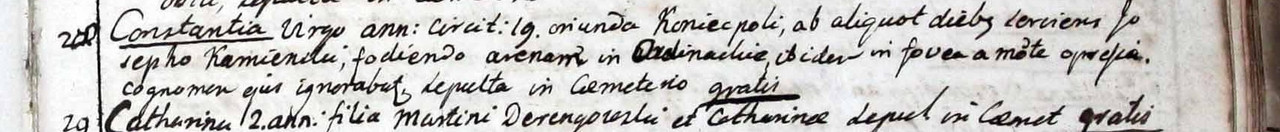 28 Constantia Virgo ann: circit: 19. oriunda Koniecpoli, ab aliquot dieb9 serviens Jo
sepho Kamienski, fodiendo arenam in ibidem in fovea a mõte opressa.
cognomen ejus ignorabat, sepulta in Cœmeterio gratis
29 Catharina 2. ann: filia Martini et Catharinæ sepul in Cœmet gratis